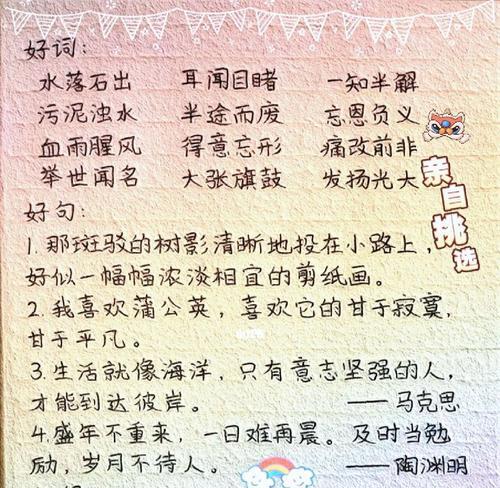 好词：
水落石出 耳闻目睹 一知半解
污泥浊水 半途而废 忘恩负义
血雨腥风 得意忘形 痛改前非
举世闻名 大张旗鼓 发扬光大
亲自挑选
好句：
1. 那斑驳的树影清晰地投在小路上，
好似一幅幅浓淡相宜的剪纸画。
2. 我喜欢蒲公英，喜欢它的甘于寂寞，
甘于平凡。
3. 生活就像海洋，只有意志坚强的人，
才能到达彼岸。 ——马克思
4. 盛年不重来，一日难再晨。及时当勉
励，岁月不待人。 ——陶渊明